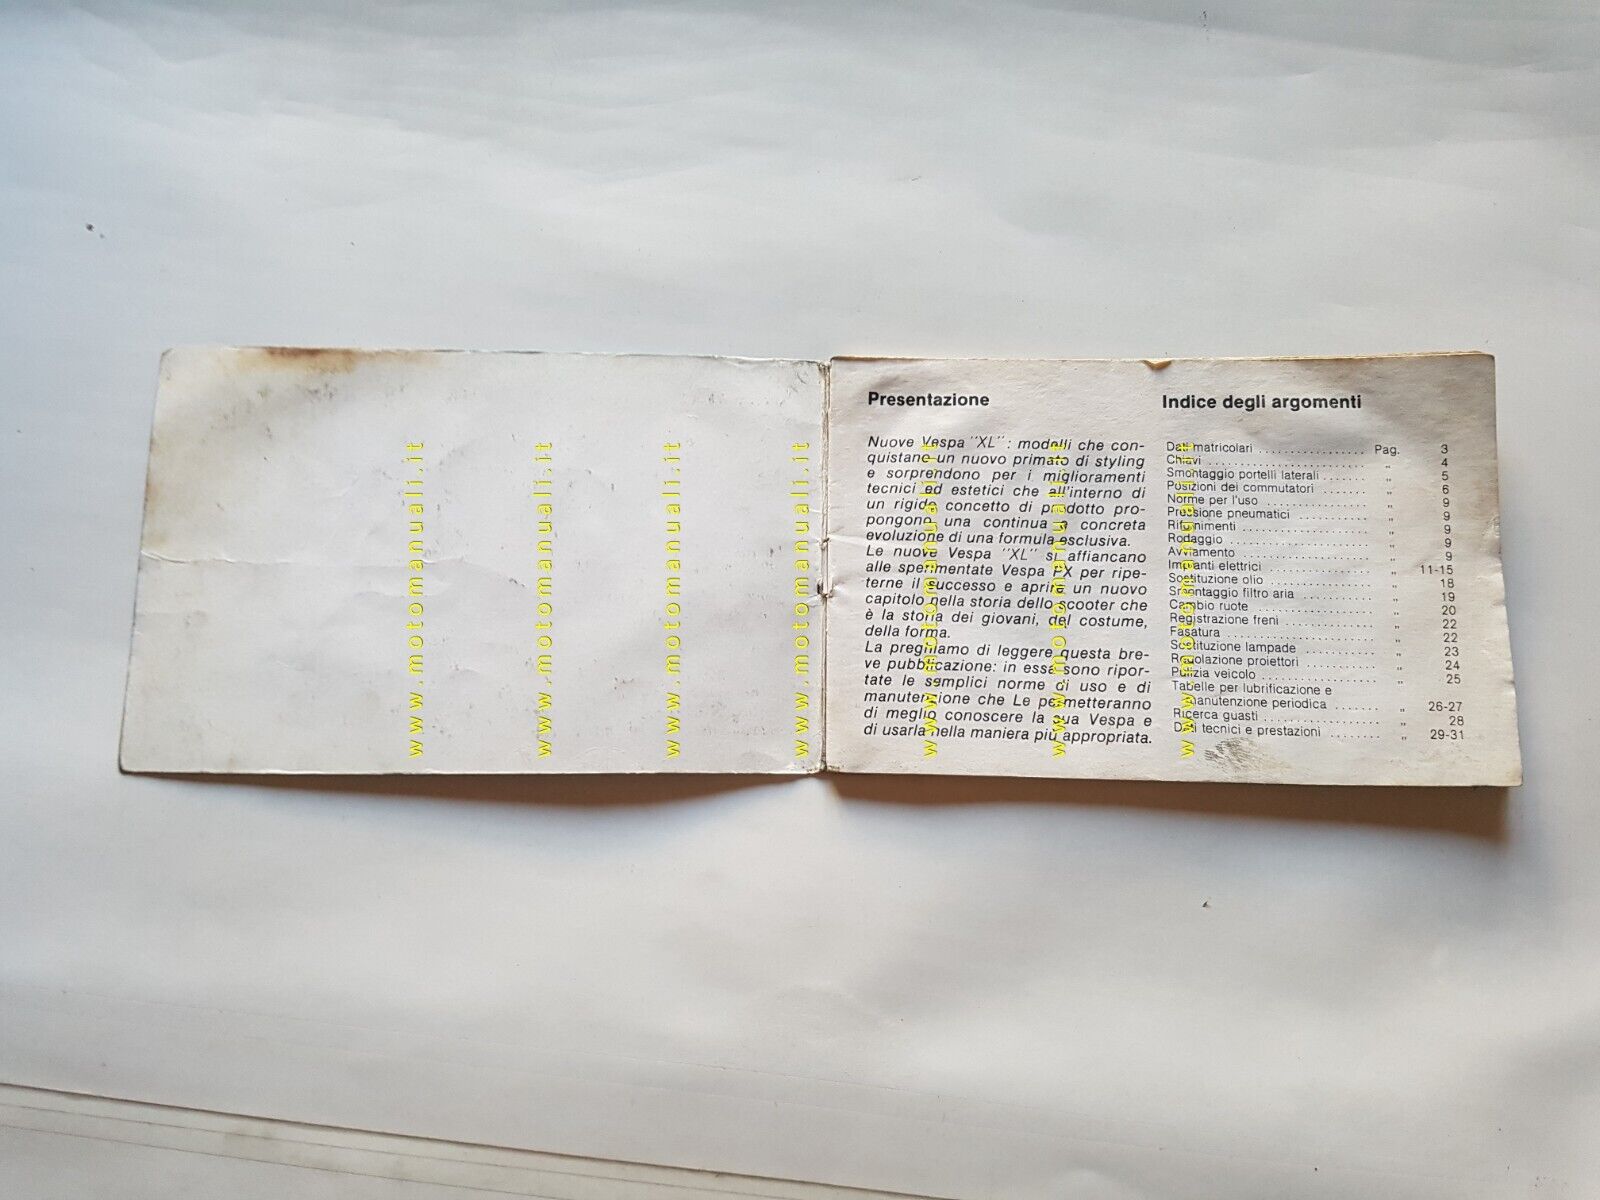 Presentazione
Nuove Vespa "XL": modelli che con-
quistano un nuovo primato di styling
e sorprendono per i miglioramenti
tecnici ed estetici che all'interno di
un rigido concetto di prodotto pro-
pongono una continua e concreta
evoluzione di una formula esclusiva.
Le nuove Vespa "XL" si affiancano
alle sperimentate Vespa PX per ripe-
terne il successo e aprire un nuovo
capitolo nella storia dello scooter che
è la storia dei giovani, del costume,
della forma.
La preghiamo di leggere questa bre-
ve pubblicazione: in essa sono ripor-
tate le semplici norme di uso e di
manutenzione che Le permetteranno
di meglio conoscere la sua Vespa e
di usarla nella maniera più appropriata.
Indice degli argomenti
Dati matricolari ................ Pag. 3
Chiavi ........................ " 4
Smontaggio portelli laterali ....... " 5
Posizioni dei commutatori ....... " 6
Norme per l'uso ................ " 9
Pressione pneumatici ........... " 9
Rifornimenti ................... " 9
Rodaggio ..................... " 9
Avviamento ................... " 9
Impianti elettrici ............... " 11-15
Sostituzione olio ............... " 18
Smontaggio filtro aria ........... " 19
Cambio ruote .................. " 20
Registrazione freni ............. " 22
Fasatura ...................... " 22
Sostituzione lampade ........... " 23
Regolazione proiettori .......... " 24
Pulizia veicolo ................. " 25
Tabelle per lubrificazione e
manutenzione periodica ....... " 26-27
Ricerca guasti ................. " 28
Dati tecnici e prestazioni ........ " 29-31
www.motomanuali.it
www.motomanuali.it
www.motomanuali.it
www.motomanuali.it
www.motomanuali.it
www.motomanuali.it
www.motomanuali.it